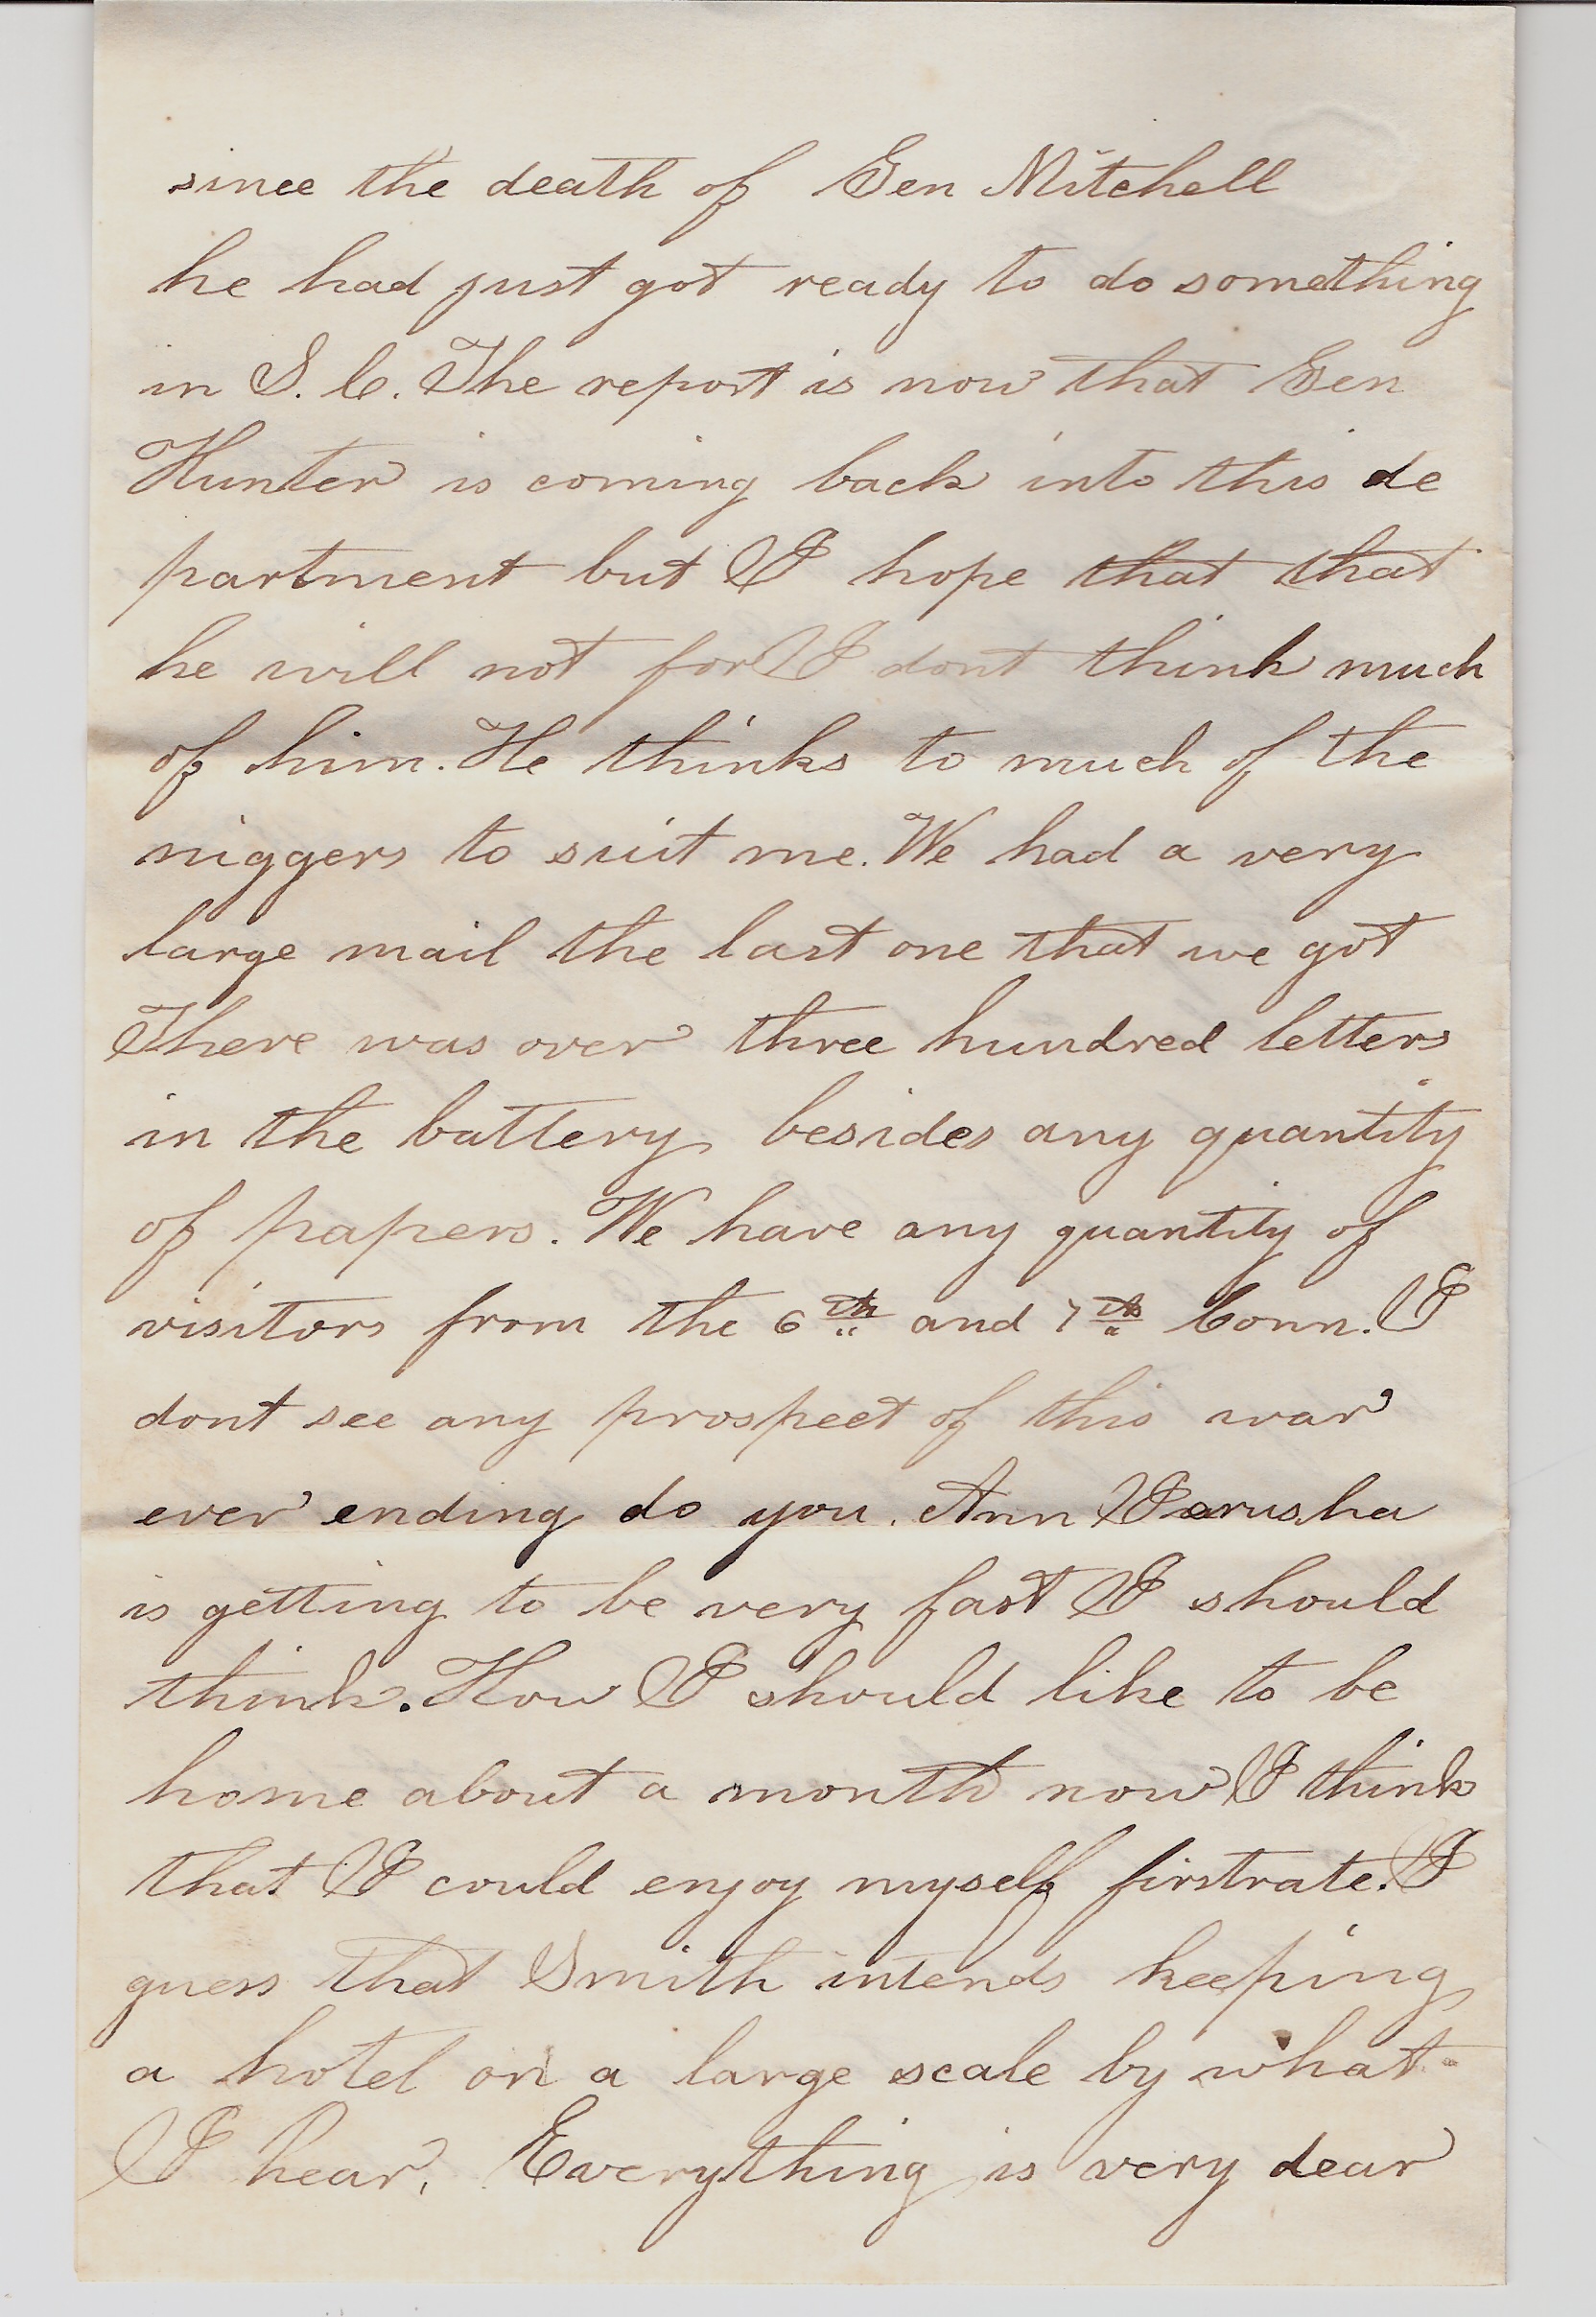 since the death of Gen Mitchell
he had just got ready to do something
in S. C. The report is now that Gen
Hunter is coming back into this de
partment but I hope that that
he will not for I dont think much
of him. He thinks to much of the
niggers to suit me. We had a very
large mail the last one that we got
There was over three hundred letters
in the battery besides any quantity
of papers. We have any quantity of
visitors from the 6th and 7th Conn. I
dont see any prospect of this war
ever ending do you. Ann Jarusha
is getting to be very fast I should
think. How I should like to be
home about a month now I think
that I could enjoy myself firstrate. I
guess that Smith intends keeping
a hotel on a large scale by what
I hear. Everything is very dear